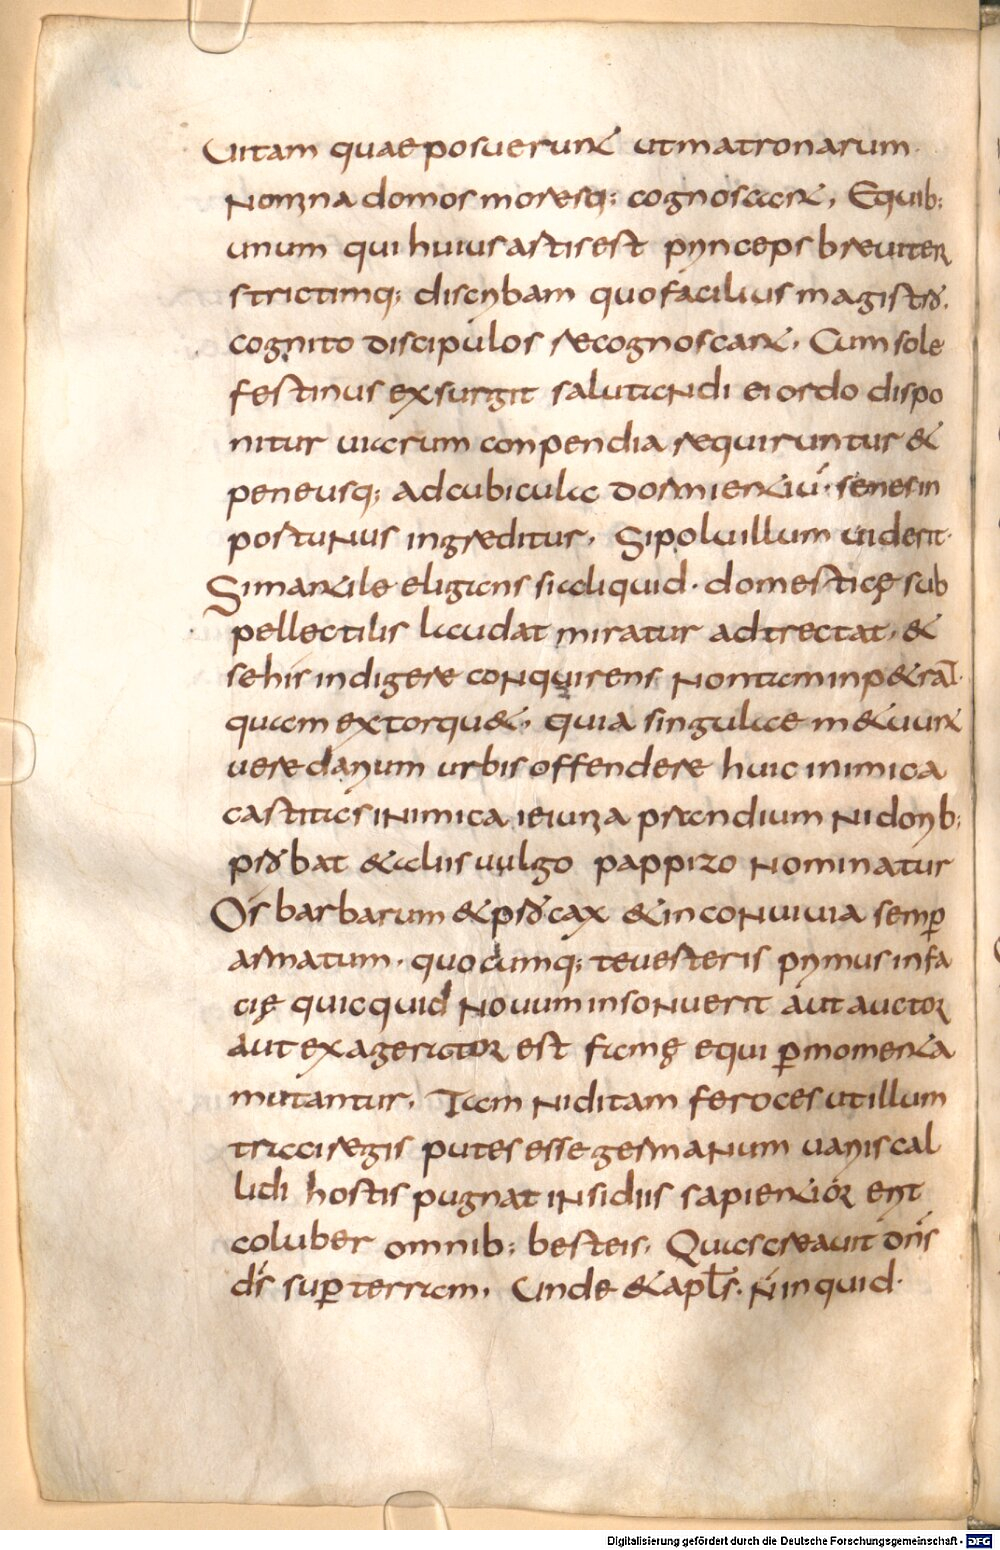 Uitam quae posuerunt ut matronarum·
Nomina domos moresq; cognoscant, Equib;
unum qui huius astis est princeps breuiter
strictimq; discribam quo facilius magistro,
cognito discipulos recognoscant, Cum sole
festinus exsurgit salutandi ei ordo dispo
nitur uiarum conpendia requiruntur &
peneusq; ad cubicula dormientiū· senes in
postunus ingreditur, Si poluillum uiderit·
Si mantile eligans si aliquid· domesticę sub
pellectilis laudat miratur adtrectat, &
se his indigere conquirens Non tam inp&rat·
quam extorqu&, quia singulae m&uunt
ueredarium urbis offendere huic inimica
castitas inimica ieiunia prandium Nidorib;
probat & aluis uulgo pappizo Nominatur
Os barbarum & procax & in conuiuia semp
armatum· quo cumq; te uesteris primus in fa
cię quicquid Nouum insonuerit aut auctor
aut exagerator est famę equi p momenta
mutantur, Tam Niditam feroces ut illum
traci regis putes esse germanum uariis cal
lidi hostis pugnat insidiis sapientior erit
coluber omnib; besteis, Quas creauit dn̄s
ds̄ sup terram, Unde & apl̄s· N̄ inquid·
Digitalisierung gefördert durch die Deutsche Forschungsgemeinschaft - DFG